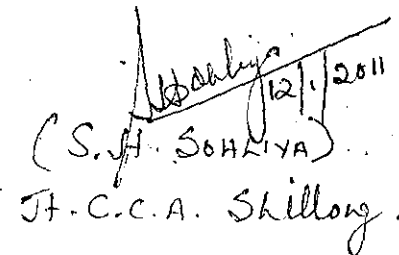 12/1/2011
(S.H. SOHLIYA)
Jt. C.C.A. Shillong.